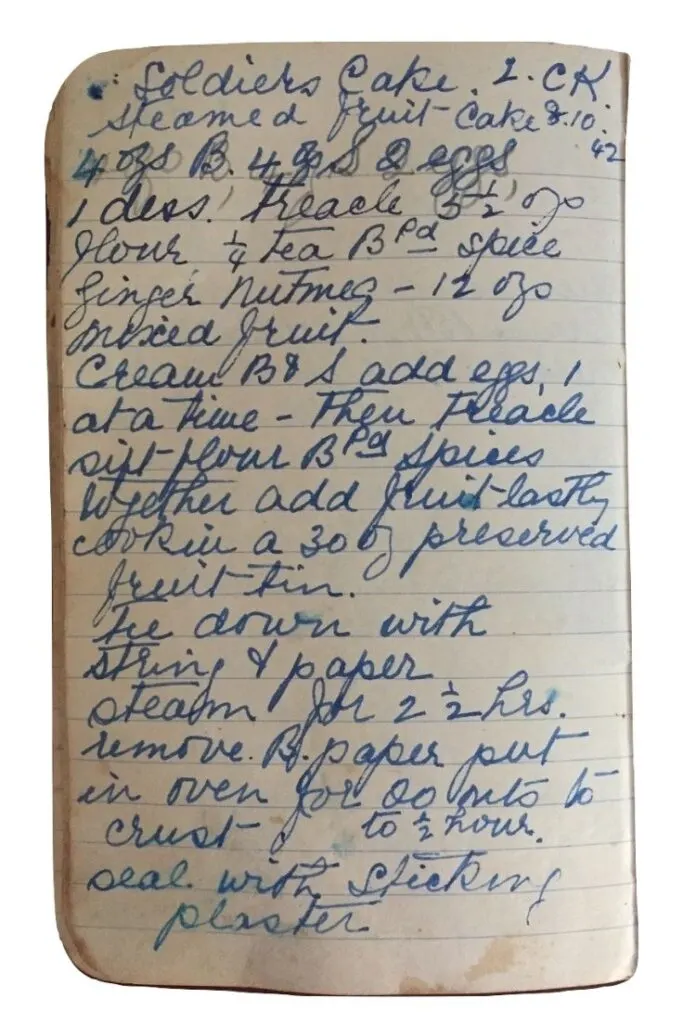 Soldiers Cake. 2. CK
Steamed fruit Cake 8.10.
42
4 ozs B. 4 ozs S 2 eggs
1 dess. Treacle 5 ½ ozs
flour ¼ tea B Pd spice
Ginger Nutmeg - 12 ozs
mixed fruit.
Cream B & S add eggs, 1
at a time - then Treacle
sift flour B Pd spices
together add fruit lastly
cook in a 30 oz preserved
fruit tin.
Tie down with
string & paper
steam for 2 ½ hrs.
remove. B. paper put
in oven for 20 mts to
crust to ½ hour.
seal with sticking
plaster